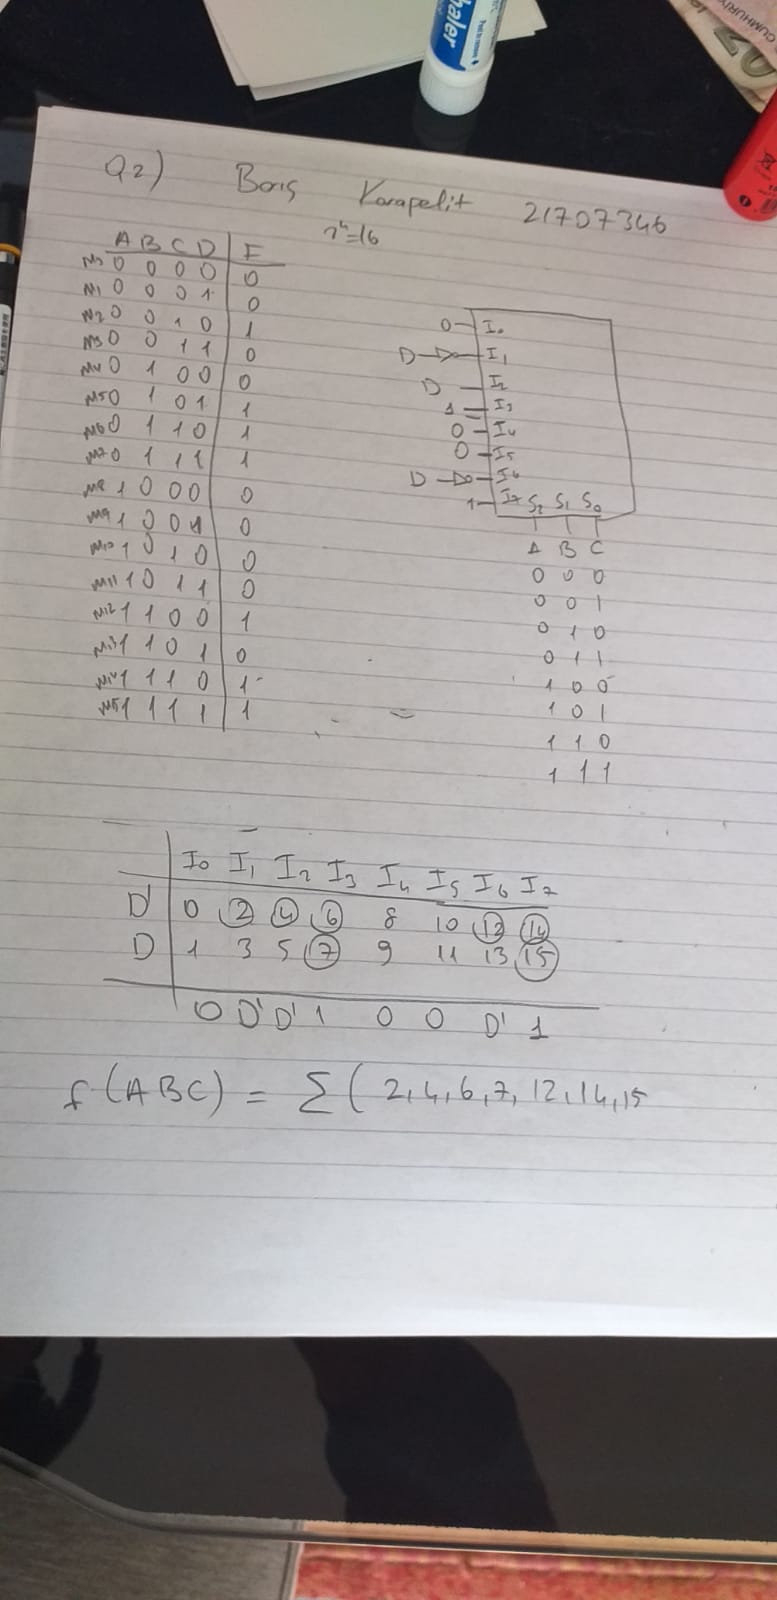 CUMHURİY
haler
Q2) Barış Karapelit 21707346
2⁴=16
A B C D F
m0 0 0 0 0 0
m1 0 0 0 1 0
m2 0 0 1 0 1
m3 0 0 1 1 0
m4 0 1 0 0 0
m5 0 1 0 1 1
m6 0 1 1 0 1
m7 0 1 1 1 1
m8 1 0 0 0 0
m9 1 0 0 1 0
m10 1 0 1 0 0
m11 1 0 1 1 0
m12 1 1 0 0 1
m13 1 1 0 1 0
m14 1 1 1 0 1
m15 1 1 1 1 1
0 I0
D I1
D I2
1 I3
0 I4
0 I5
D I6
1 I7 S2 S1 S0
A B C
0 0 0
0 0 1
0 1 0
0 1 1
1 0 0
1 0 1
1 1 0
1 1 1
I0 I1 I2 I3 I4 I5 I6 I7
D' 0 2 4 6 8 10 12 14
D 1 3 5 7 9 11 13 15
0 D' D' 1 0 0 D' 1
f(ABC) = Σ( 2,4,6,7, 12,14,15